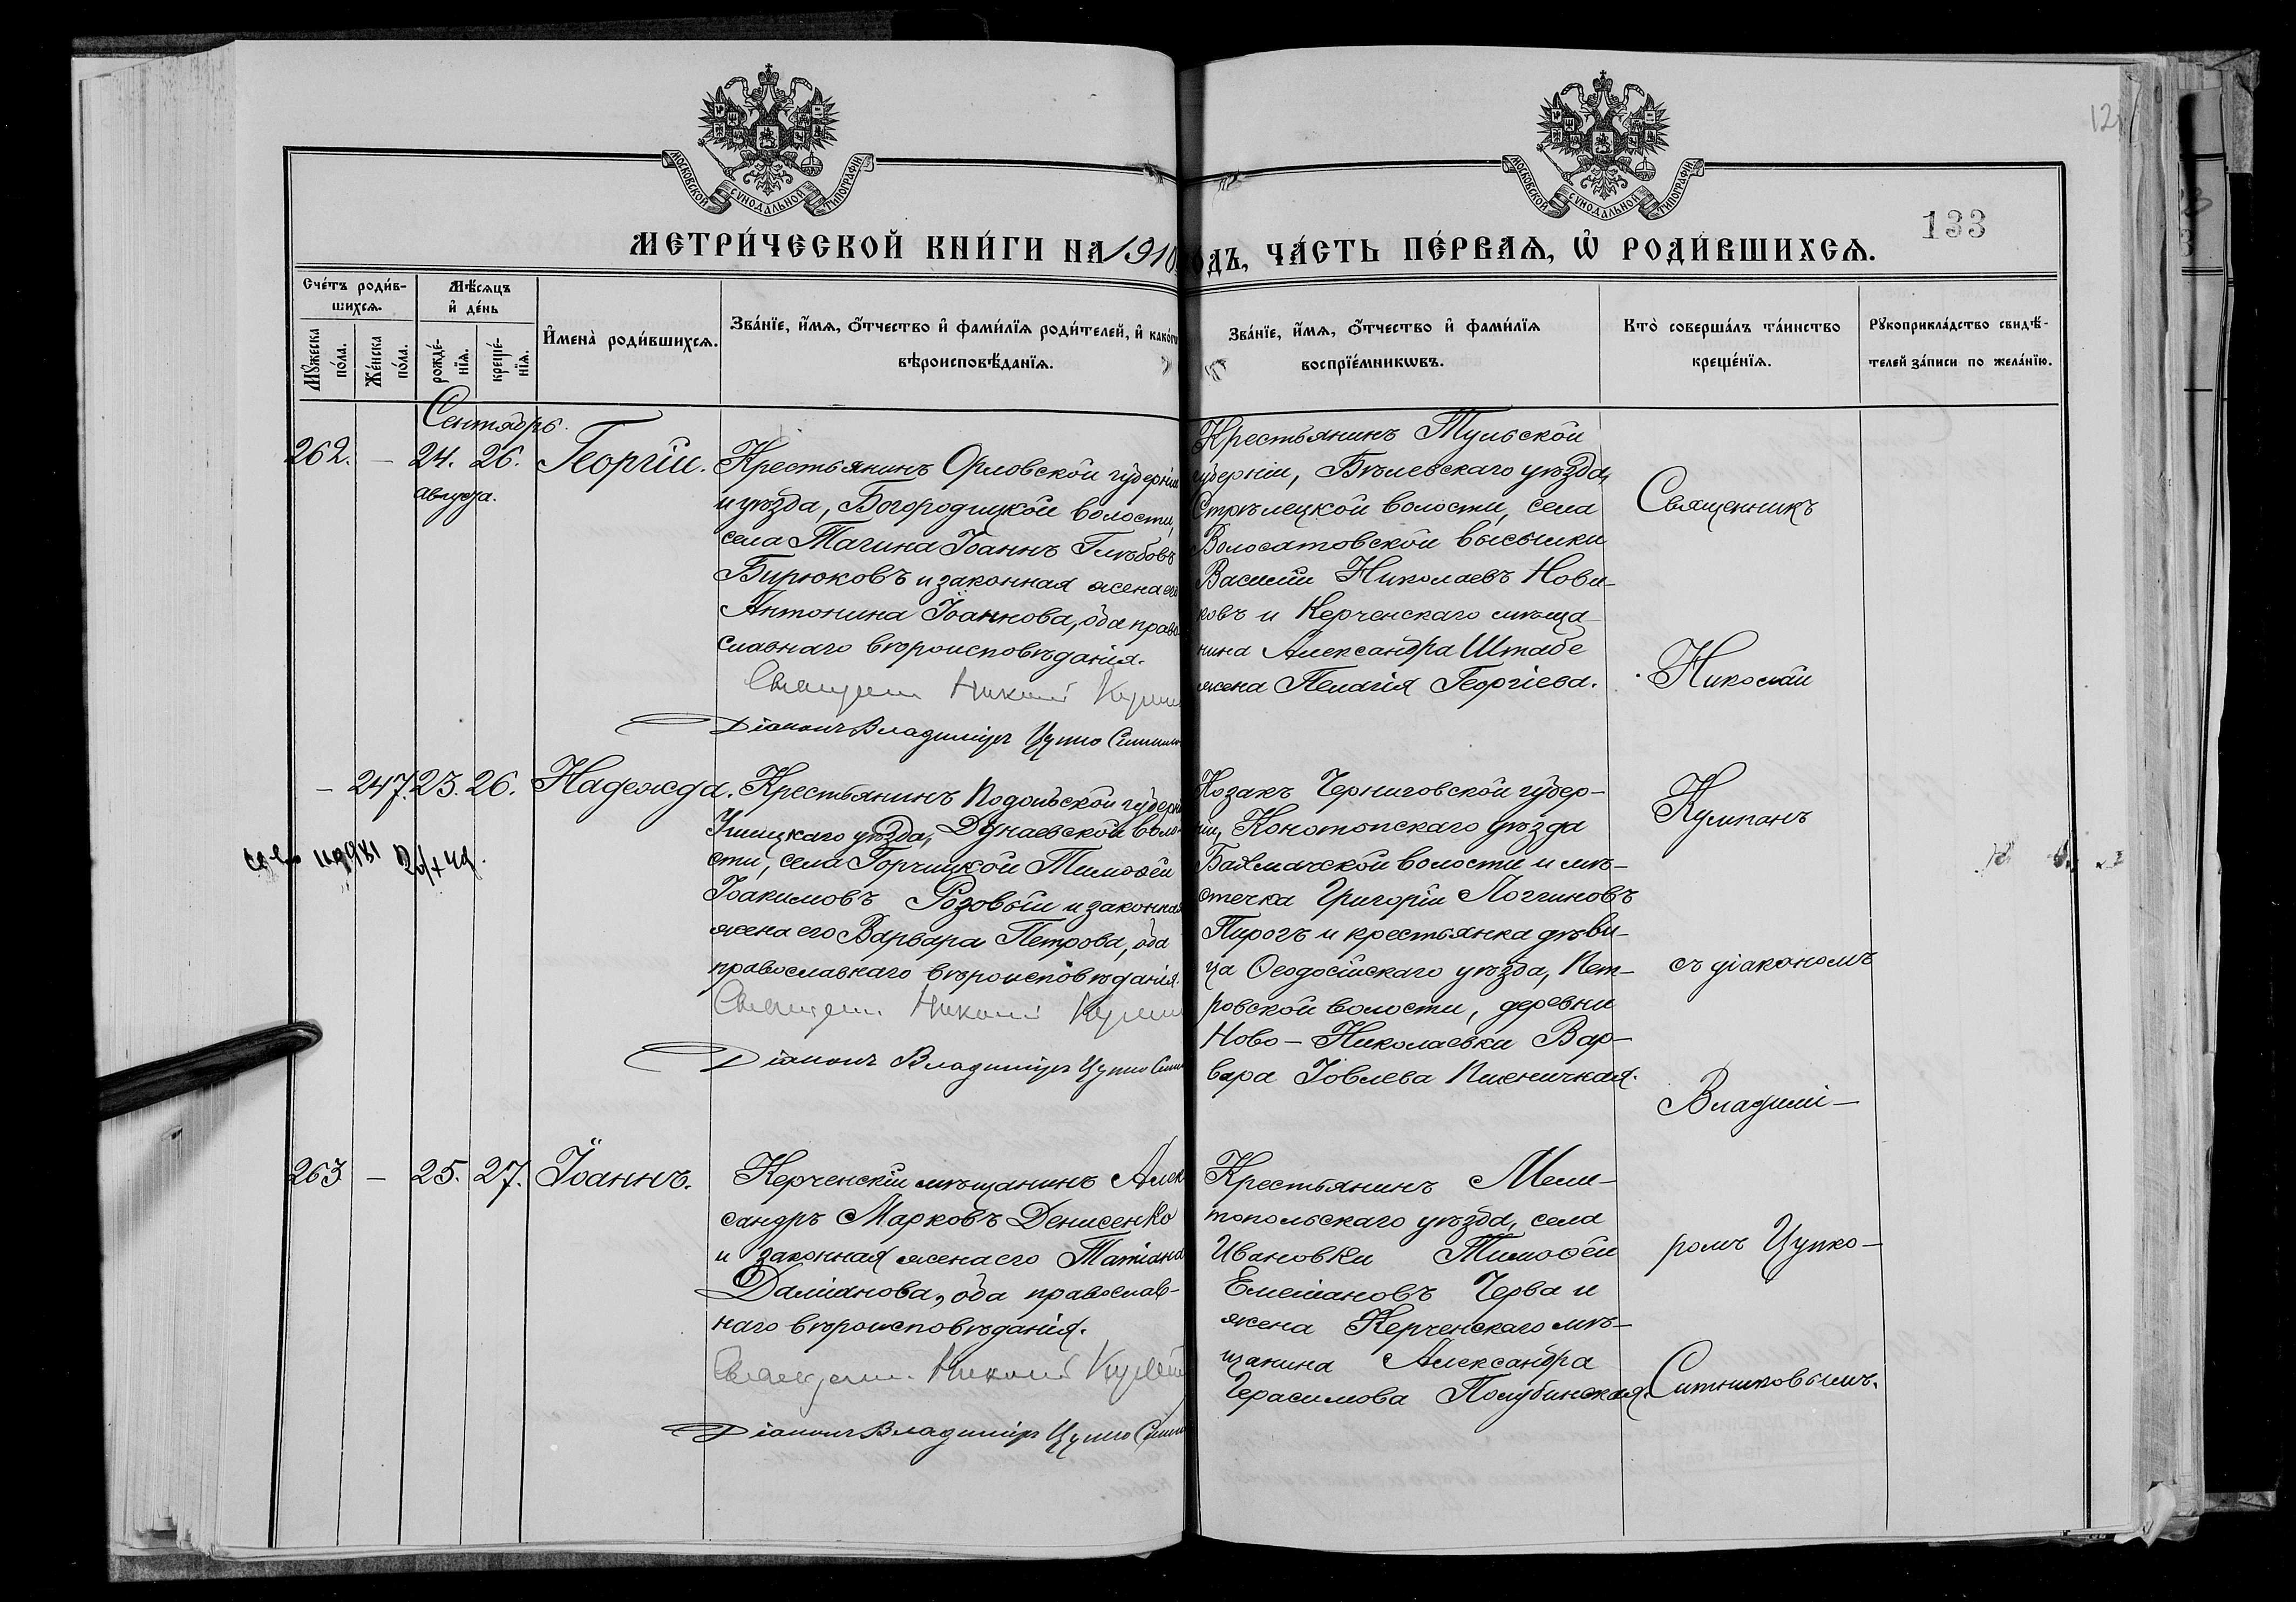 МОСКОВСКОЙ СУНОДАЛЬНОЙ ТИПОГРАФІИ
МОСКОВСКОЙ СУНОДАЛЬНОЙ ТИПОГРАФІИ
133
МЕТРИ́ЧЕСКОЙ КНИ́ГИ НА 1910
ОДЪ, ЧА́СТЬ ПЕ́РВАѦ, Ѡ РОДИ́ВШИХСѦ.
Сче́тъ роди́в-
шихсѧ.
Мꙋжеска
по́ла.
Же́нска
по́ла.
Мѣ́сѧцъ
и҆ де́нь
рожде́-
нїѧ.
креще́-
нїѧ.
И҆мена̀ роди́вшихсѧ.
Зва́нїе, и҆́мѧ, о҆́тчество и҆ фами́лїѧ роди́телей, и҆ како́гѡ
вѣроисповѣ́данїѧ.
Зва́нїе, и҆́мѧ, о҆́тчество и҆ фами́лїѧ
воспрїе́мникѡвъ.
Кто̀ соверша́лъ та́инство
креще́нїѧ.
Рꙋкоприкла́дство свидѣ́-
телей за́писи по жела́нїю.
Сентябрь.
262. — 24. 26. Георгій.
августа.
Крестьянинъ Орловской губерніи
и уѣзда, Богородицкой волости,
села Тагина Іоаннъ Глѣбовъ
Бирюковъ и законная жена его
Антонина Іоаннова, оба право
славнаго вѣроисповѣданія.
Священ. Николай
Діаконъ Владиміръ Цупко
Крестьянинъ Тульской
губерніи, Бѣлевскаго уѣзда,
Стрѣлецкой волости, села
Волосатовской высылки
Василій Николаевъ Нови-
ковъ и Керченскаго мѣща-
нина Александра Штабе
жена Пелагія Георгіева.
Священникъ
Николай
— 247. 23. 26. Надежда.
Крестьянинъ Подольской губерн
Ушицкаго уѣзда, Дунаевской воло-
сти, села Горчицкой Тимоѳей
Іоакимовъ Розовый и законная
жена его Варвара Петрова, оба
православнаго вѣроисповѣданія.
Священ. Николай
Діаконъ Владиміръ Цупко
Козакъ Черниговской губер-
ніи, Конотопскаго уѣзда
Бахмачской волости и мѣ-
стечка Григорій Логгиновъ
Пирогъ и крестьянка дѣви-
ца Ѳеодосійскаго уѣзда, Пет-
ровской волости, деревни
Ново-Николаевки Вар-
вара Іовлева Пшеничная.
Кумпанъ
съ діакономъ
Владимі-
263 — 25. 27. Іоаннъ.
Керченскій мѣщанинъ Алек
сандръ Марковъ Денисенко
и законная жена его Татіана
Даміанова, оба православ-
наго вѣроисповѣданія.
Священ. Николай
Діаконъ Владиміръ Цупко
Крестьянинъ Мели-
топольскаго уѣзда, села
Ивановки Тимоѳей
Емеліановъ Черва и
жена Керченскаго мѣ-
щанина Александра
Герасимова Полубинская.
ромъ Цупко-
Ситниковымъ.